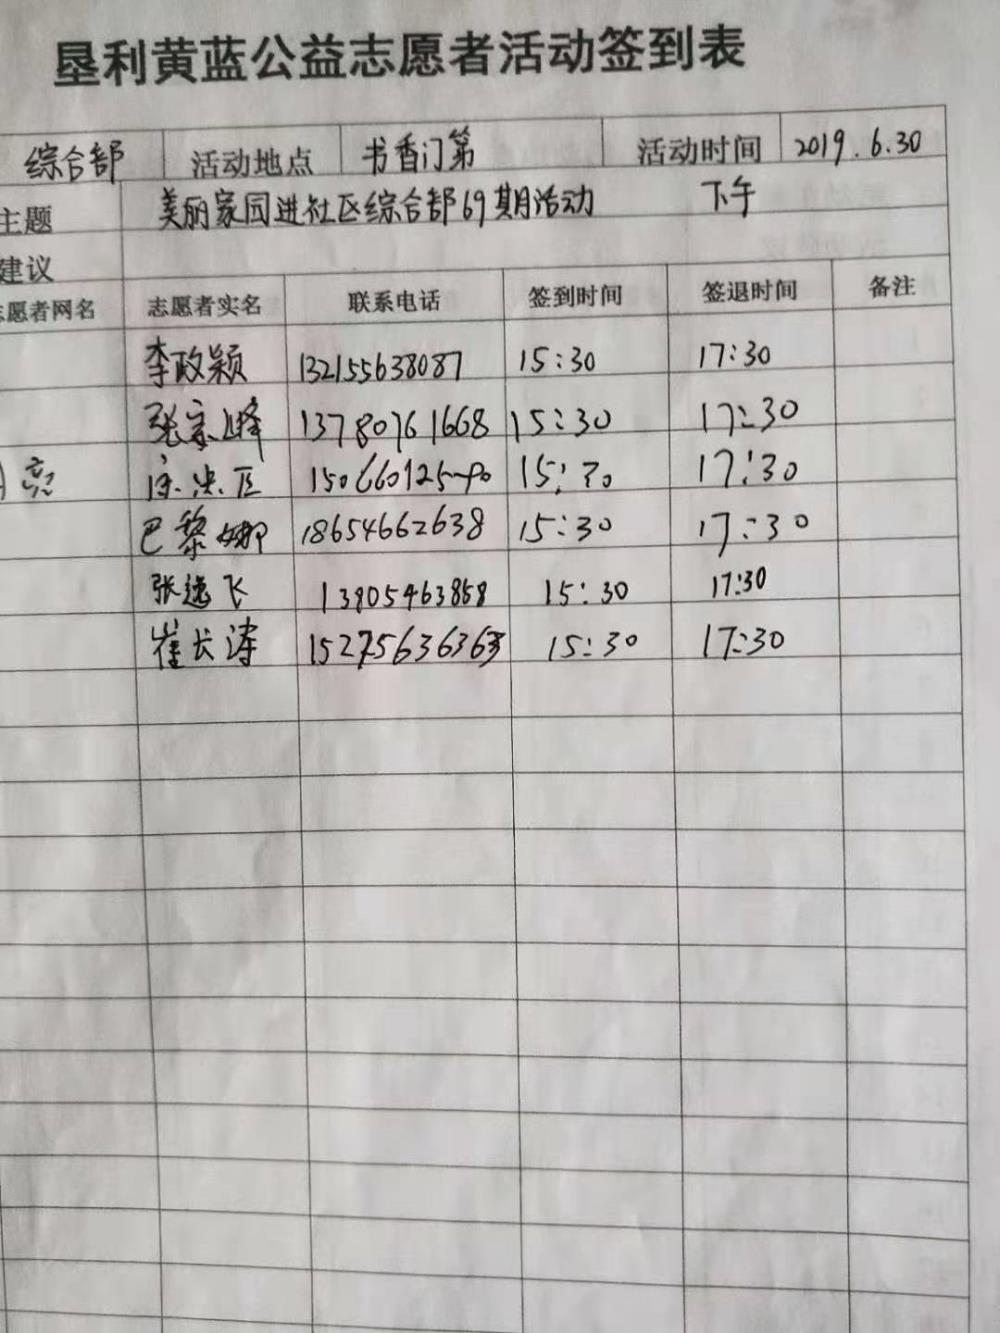 垦利黄蓝公益志愿者活动签到表
综合部 活动地点 书香门第 活动时间 2019.6.30
主题 美丽家园进社区综合部69期活动 下午
建议
志愿者网名 志愿者实名 联系电话 签到时间 签退时间 备注
李政颖 132155638087 15:30 17:30
张家峰 13780761668 15:30 17:30
15066012540 15:30 17:30
巴黎娜 18654662638 15:30 17:30
张逸飞 13905463858 15:30 17:30
崔长涛 15275636363 15:30 17:30